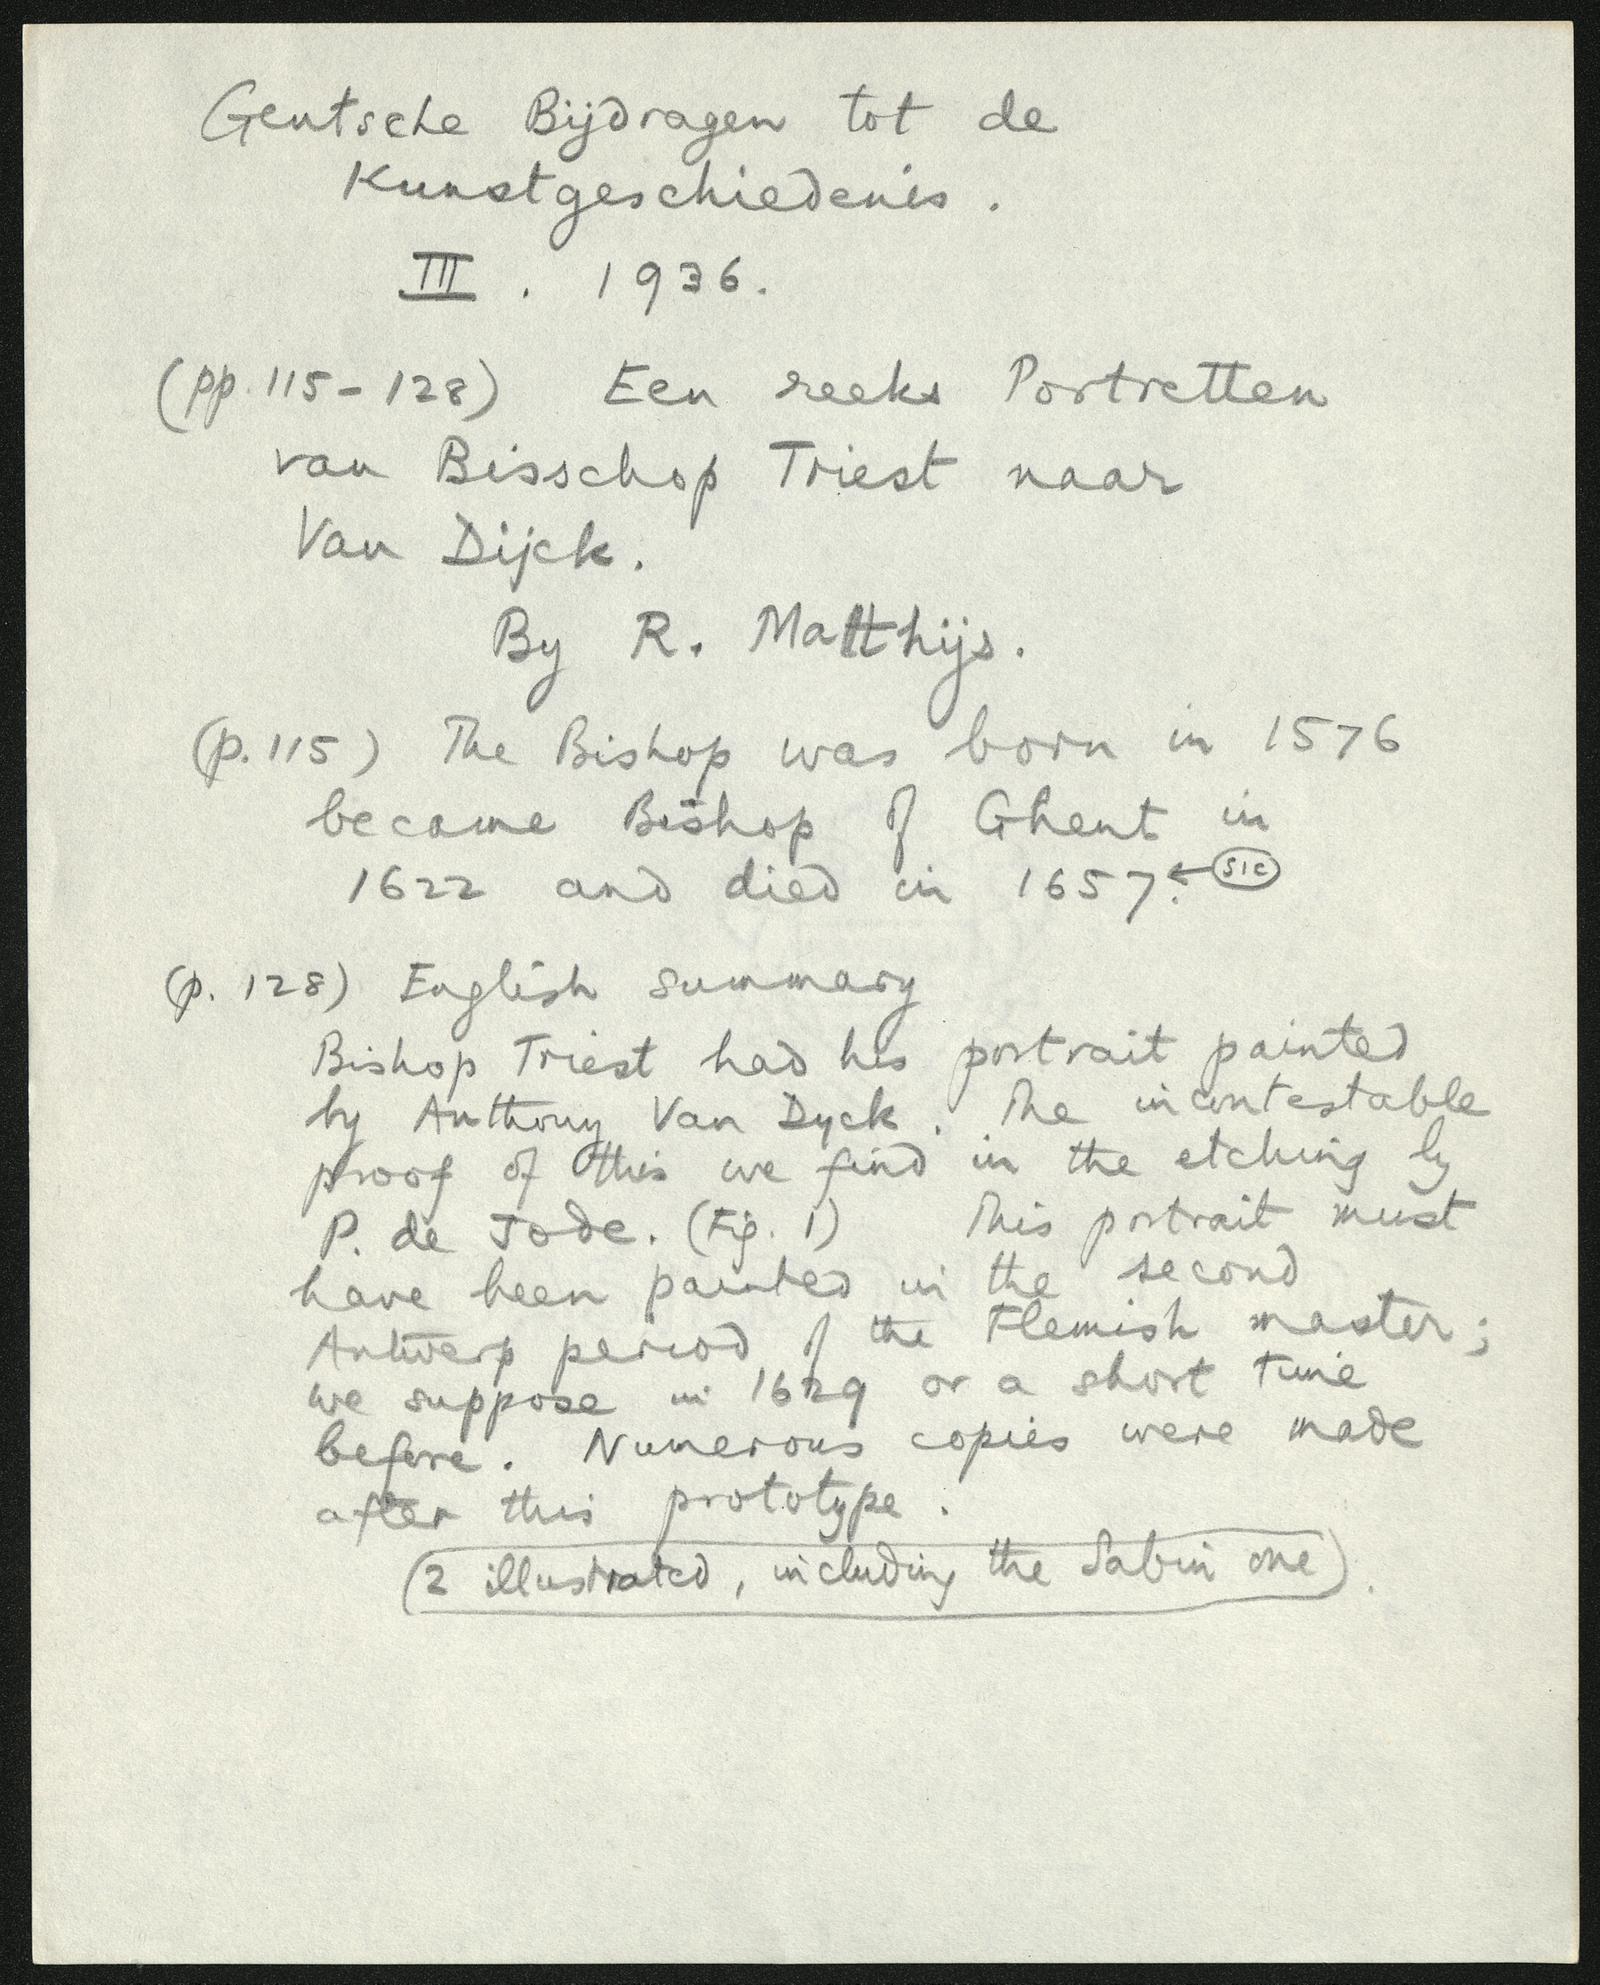 Gentsche Bijdragen tot de
Kunstgeschiedenis.
III. 1936.
(pp. 115-128) Een reeks Portretten
van Bisschop Triest naar
Van Dijck.
By R. Matthijs.
(p. 115) The Bishop was born in 1576
became Bishop of Ghent in
1622 and died in 1657. ← sic
(p. 128) English summary
Bishop Triest had his portrait painted
by Anthony Van Dyck. The incontestable
proof of this we find in the etching by
P. de Jode. (Fig. 1) This portrait must
have been painted in the second
Antwerp period of the Flemish master;
we suppose in 1629 or a short time
before. Numerous copies were made
after this prototype.
(2 illustrated, including the Sabin one).